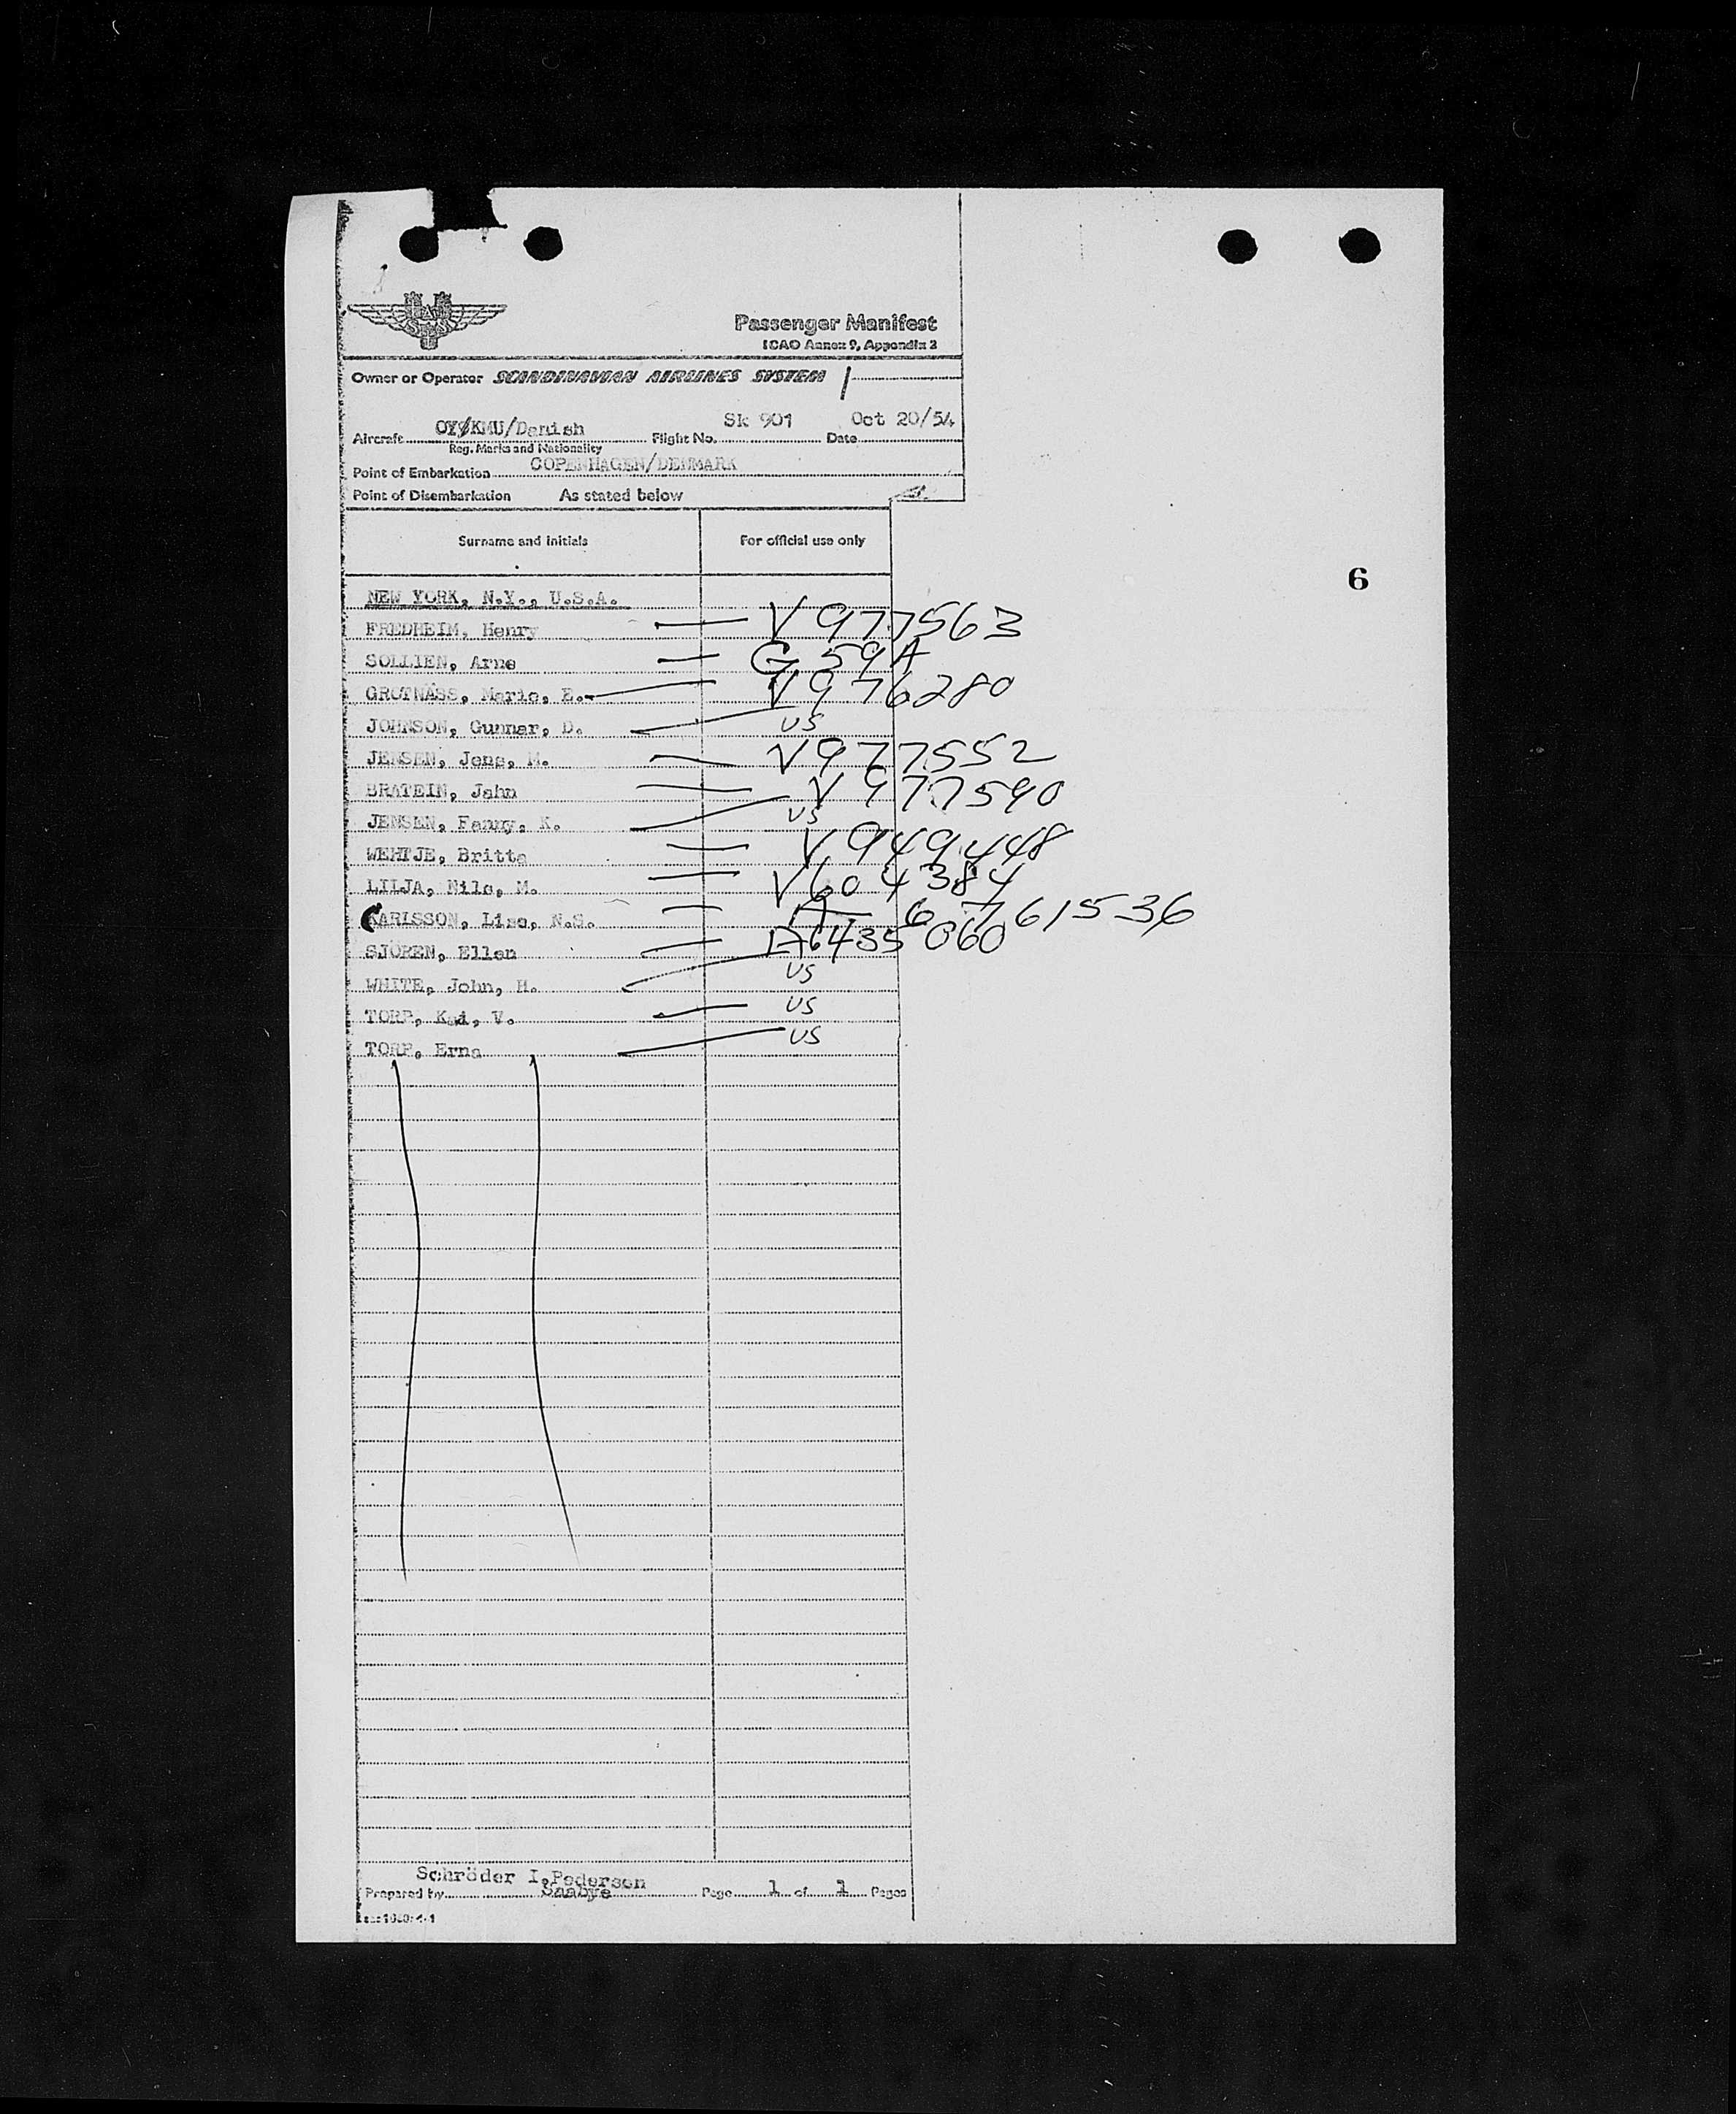 SAS
Passenger Manifest
ICAO Annex 9, Appendix 3
Owner or Operator SCANDINAVIAN AIRLINES SYSTEM
Aircraft OY/KMU/Danish Flight No. Sk 901 Date Oct 20/54
Reg. Marks and Nationality
Point of Embarkation COPENHAGEN/DENMARK
Point of Disembarkation As stated below
Surname and initials For official use only
6
NEW YORK, N.Y., U.S.A.
FREDHEIM, Henry V 977563
SOLLIEN, Arne G 59A
GROTNÄSS, Marie, E. V976280
JOHNSON, Gunnar, D. US
JENSEN, Jens, M. V977552
BRATEIN, Jahn V 977590
JENSEN, Fanny, K. US
WEHTJE, Britta V 949448
LILJA, Nils, M. V604384
KARLSSON, Lisa, N.S. A 6 761536
SJÖREN, Ellen A6435060
WHITE, John, H. US
TORP, Kai, V. US
TORP, Erna US
Schröder I.Pedersen
Prepared by Saabye Page 1 of 1 Pages